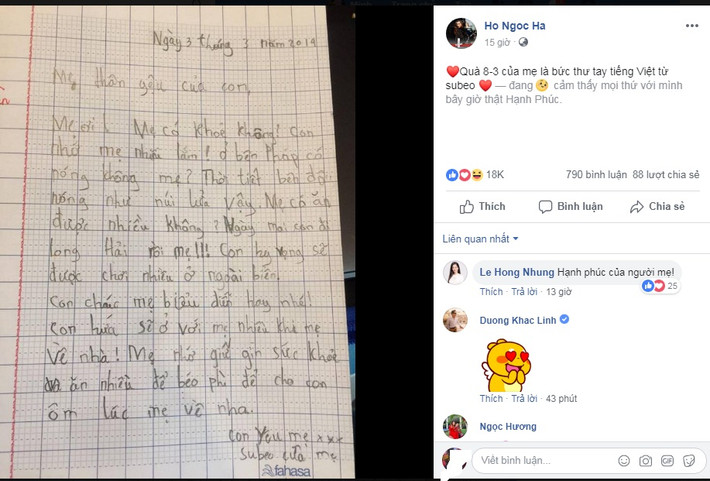 Ngày 3 tháng 3 năm 2019
Mẹ thân yêu của con,
Mẹ ơi! Mẹ có khoẻ không! Con
nhớ mẹ nhiều lắm! ở bên Pháp có
nóng không mẹ? Thời tiết bên đây
nóng như núi lửa vậy. Mẹ có ăn
được nhiều không? Ngày mai con đi
long Hải rồi mẹ!!! Con hy vọng sẽ
được chơi nhiều ở ngoài biển.
Con chúc mẹ biểu diễn hay nhé!
Con hứa sẽ ở với mẹ nhiều khi mẹ
Về nhà! Mẹ nhớ giữ gìn sức khoẻ
ăn nhiều để béo phì để cho con
ôm lúc mẹ về nha.
con you mẹ xxx
subeo của mẹ
fahasa
Ho Ngoc Ha
15 giờ ·
❤️Quà 8-3 của mẹ là bức thư tay tiếng Việt từ
subeo ❤️ — đang 🥺 cảm thấy mọi thứ với mình
bây giờ thật Hạnh Phúc.
18K 790 bình luận 88 lượt chia sẻ
Thích Bình luận Chia sẻ
Liên quan nhất
Le Hong Nhung Hạnh phúc của người mẹ!
25
Thích · Trả lời · 13 giờ
Duong Khac Linh
Thích · Trả lời · 43 phút
Ngọc Hương
Viết bình luận...
GIF